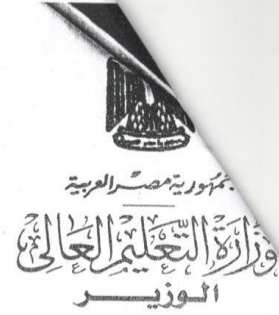 جمهورية مصر العربية
وزارة التعليم العالى
الوزيـــر